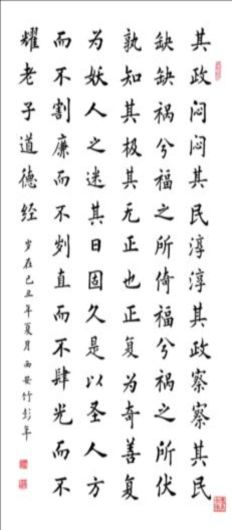 其政闷闷其民淳淳其政察察其民
缺缺祸兮福之所倚福兮祸之所伏
孰知其极其无正也正复为奇善复
为妖人之迷其日固久是以圣人方
而不割廉而不刿直而不肆光而不
耀老子道德经
岁在己丑年夏月西安竹彭年